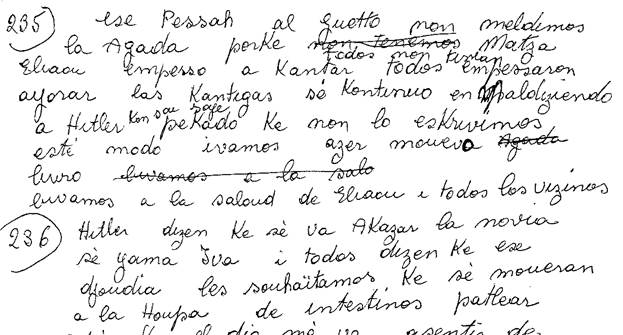 235) ese Pessah al guetto non meldimos
la Agada porKe non tenemos Matza
todos non tenian
Eliaou empesso a Kantar todos empessaron
ayorar las Kantigas sè Kontinuo en maldiziendo
a Hitler Kon sou peKado Ke non lo esKrivimos
este modo ivamos azer mouevo Agada
livro buvamos a la salo
buvamos a la saloud de Eliaou i todos los vizinos
236) Hitler dizen Ke sè va AKazar la novia
sè yama Iva i todos dizen Ke ese
djoudia les souhaïtamos Ke sè moueran
a la Houpa de intestinos patlear
el dia mè va